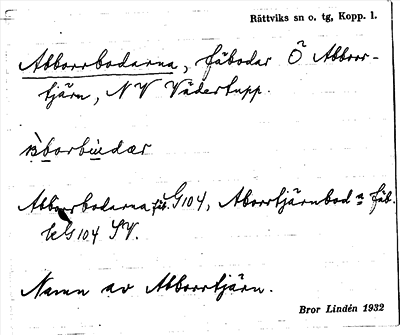 Rättviks sn o. tg, Kopp. l.
Abborrbodarna, fäbodar Ö Abborr-
tjärn, NV Vädertupp.
Abborrbodarna fäb. G104, Aborrtjärnbod a fäb.
kG104 SV.
Namn av Abborrtjärn.
Bror Lindén 1932